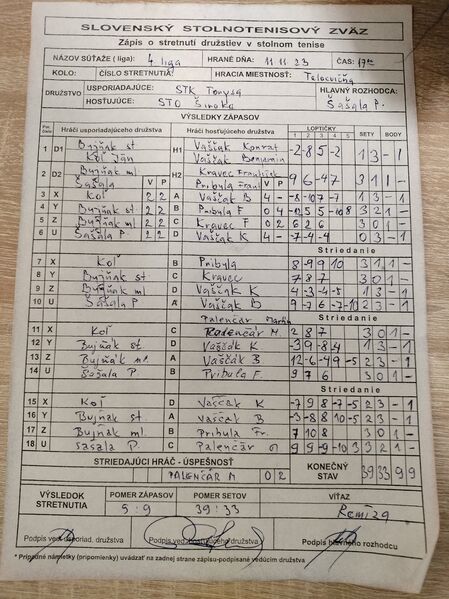 SLOVENSKÝ STOLNOTENISOVÝ ZVÄZ
Zápis o stretnutí družstiev v stolnom tenise
NÁZOV SÚŤAŽE ( liga) 4. liga HRANÉ DŇA: 11.11.23 ČAS:
KOLO: ČÍSLO STRETNUTIA: HRACIA MIESTNOSŤ:
DRUŽSTVO USPORIADAJÚCE: STK Torysa HLAVNÝ ROZHODCA:
HOSŤUJÚCE: STO Široké Šašala P.
VÝSLEDKY ZÁPASOV
Hráči usporiadajúceho družstva Hráči hosťujúceho družstva LOPTIČKY SETY BODY
1 2 3 4 5
1 D1 Bujňák st H1 Vaščák Konrat -2 8 5 -2 1 3 - 1
Kol Ján Vaščák Benjamin
2 D2 Bujňák ml. H2 Kravec František 9 6 -4 7 3 1 1 -
Šašala V P Pribula V P
3 X Kol 2 2 A Vaščák B 4 - -8 -10 7 -7 1 3 - 1
4 Y Bujňák st 2 2 B Pribula F 0 4 3 2 1 -
5 Z Bujňák ml 2 2 C Kravec F 0 2 6 2 6 3 0 1 -
6 U Šašala P. 2 2 D Vaščák K 4 - -7 -4 -4 0 3 - 1
Striedanie
7 X Kol B Pribula 8 -9 9 10 3 1 1 -
8 Y Bujňák st C Kravec 7 8 7 3 0 1 -
9 Z Bujňák ml D Vaščák K -4 -3 -4 -5 1 3 - 1
10 U Šašala P A Vaščák B 9 -7 6 -7 -10 2 3 - 1
Palenčár Martin Striedanie
11 X Kol C Palenčár M 2 8 7 3 0 1 -
12 Y Bujňák st. D Vaščák K -3 9 -8 -4 1 3 - 1
13 Z Bujňák ml. A Vaščák B 12 -6 -4 9 -5 2 3 - 1
14 U Šašala P B Pribula F. 9 7 6 3 0 1 -
Striedanie
15 X Kol D Vaščák K -7 9 8 -7 -5 2 3 - 1
16 Y Bujňák st. A Vaščák B -3 -8 8 10 -5 2 3 - 1
17 Z Bujňák ml. B Pribula Fr. 7 10 8 3 0 1 -
18 U Šašala P C Palenčár 3 2 1 -
STRIEDAJÚCI HRÁČ - ÚSPEŠNOSŤ KONEČNÝ STAV 39 33 9 9
PALENČÁR M 0 2
VÝSLEDOK STRETNUTIA POMER ZÁPASOV POMER SETOV VÍŤAZ
39:33 Remíza
Podpis ved. usporiad. družstva Podpis ved. hosťujúceho družstva Podpis hlavného rozhodcu
* Prípadné námietky (pripomienky) uvádzať na zadnej strane zápisu-podpísané vedúcim družstva